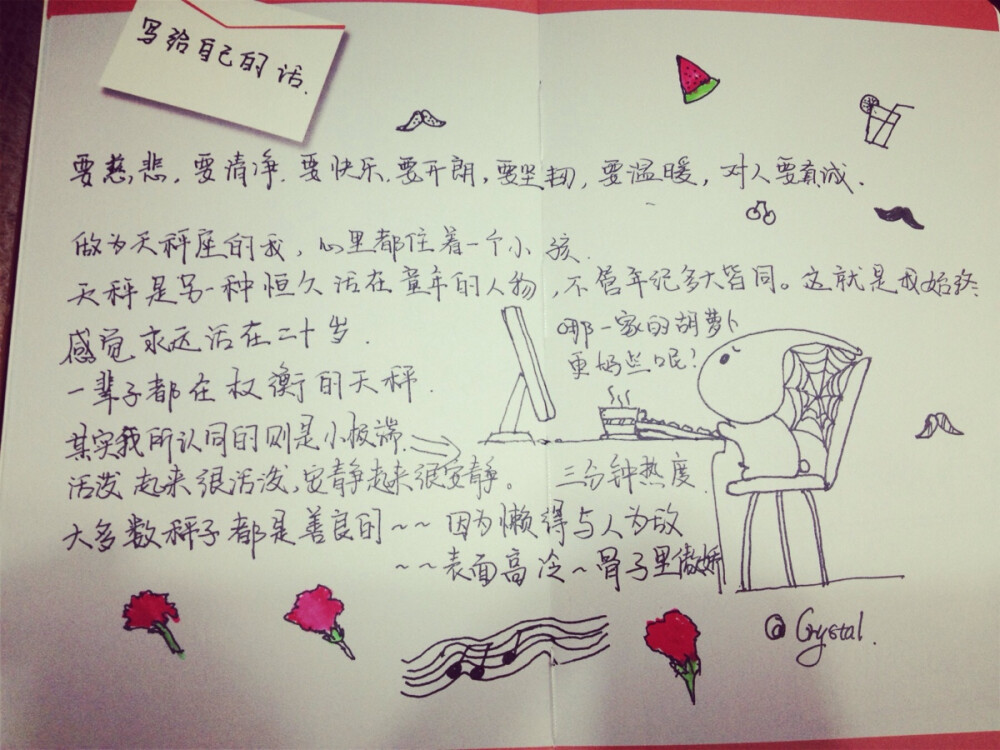 写给自己的话.
要慈悲,要清净.要快乐.要开朗,要坚韧,要温暖,对人要真诚.
做为天秤座的我,心里都住着一个小孩.
天秤是另一种恒久活在童年的人物,不管年纪多大皆同。这就是我始终
感觉永远活在二十岁.
哪一家的胡萝卜
更好些呢?
一辈子都在权衡的天秤.
其实我所认同的则是小极端.
活泼起来很活泼,安静起来很安静。
三分钟热度.
大多数秤子都是善良的~~因为懒得与人为敌
~~表面高冷~骨子里傲娇
@Crystal.